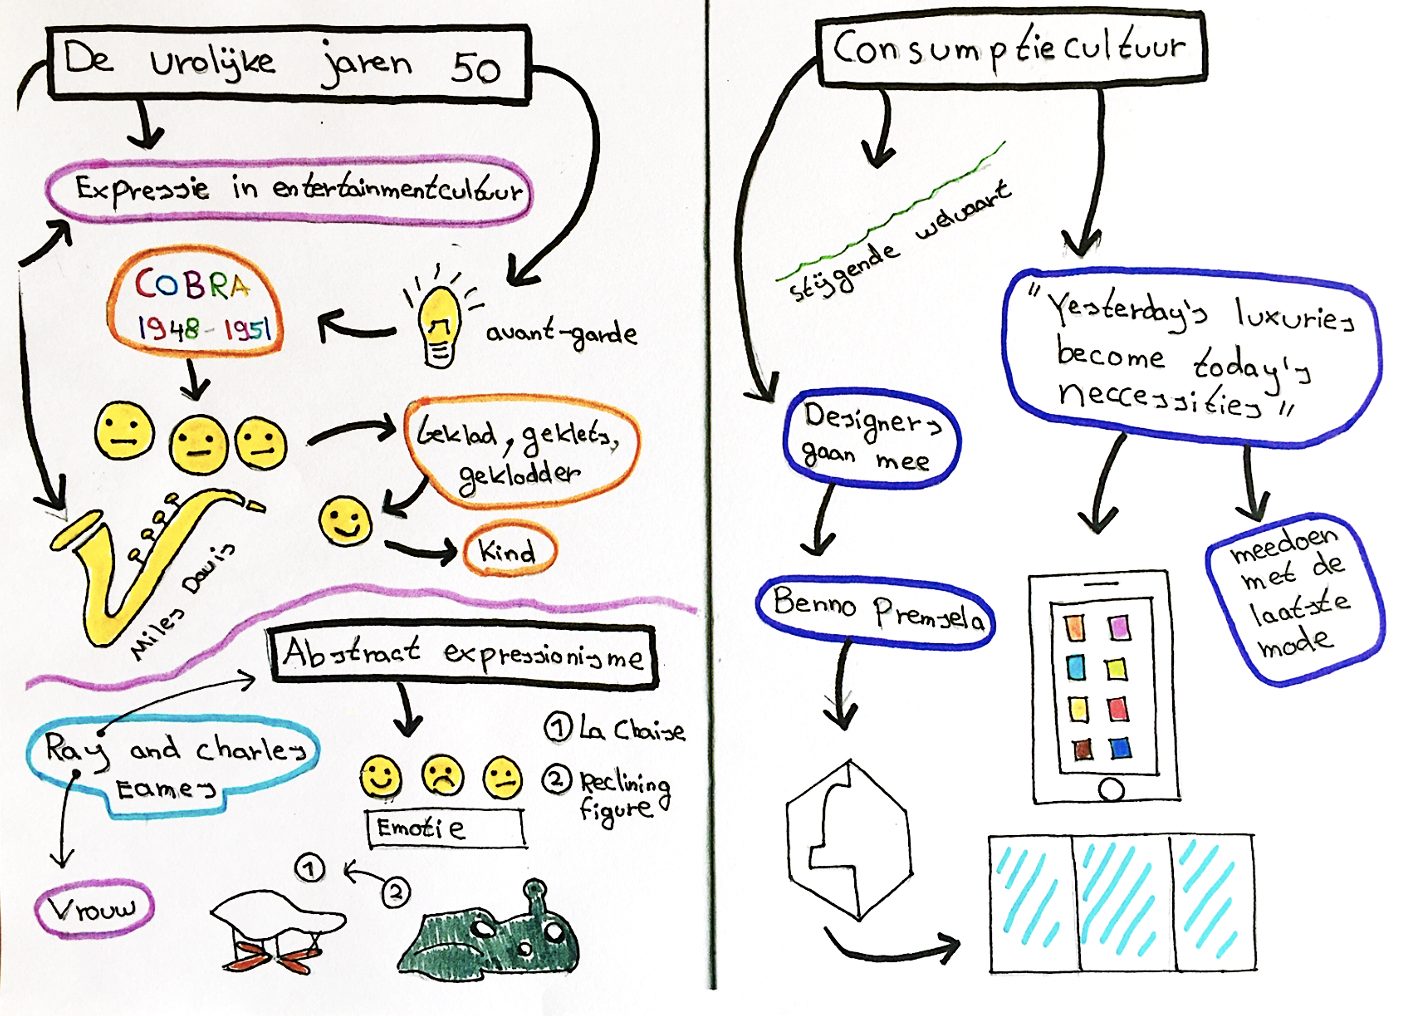 De vrolijke jaren 50
Expressie in entertainmentcultuur
COBRA
1948-1951
avant-garde
Geklad, geklets,
geklodder
Kind
Miles Davis
Abstract expressionisme
Ray and charles
Eames
Vrouw
Emotie
1 La Chaise
2 Reclining
figure
1
2
Consumptiecultuur
stijgende welvaart
"Yesterday's luxuries
become today's
neccessities"
Designers
gaan mee
Benno Premsela
meedoen
met de
laatste
mode